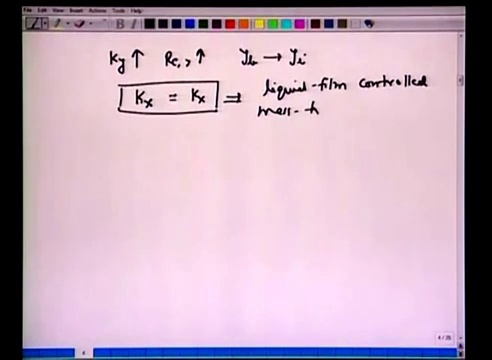 File Edit View Insert Actions Tools Help
Ky ↑ Re,y ↑ yb → yi
Kx = kx ⇒ liquid-film controlled
mass-t
4/26